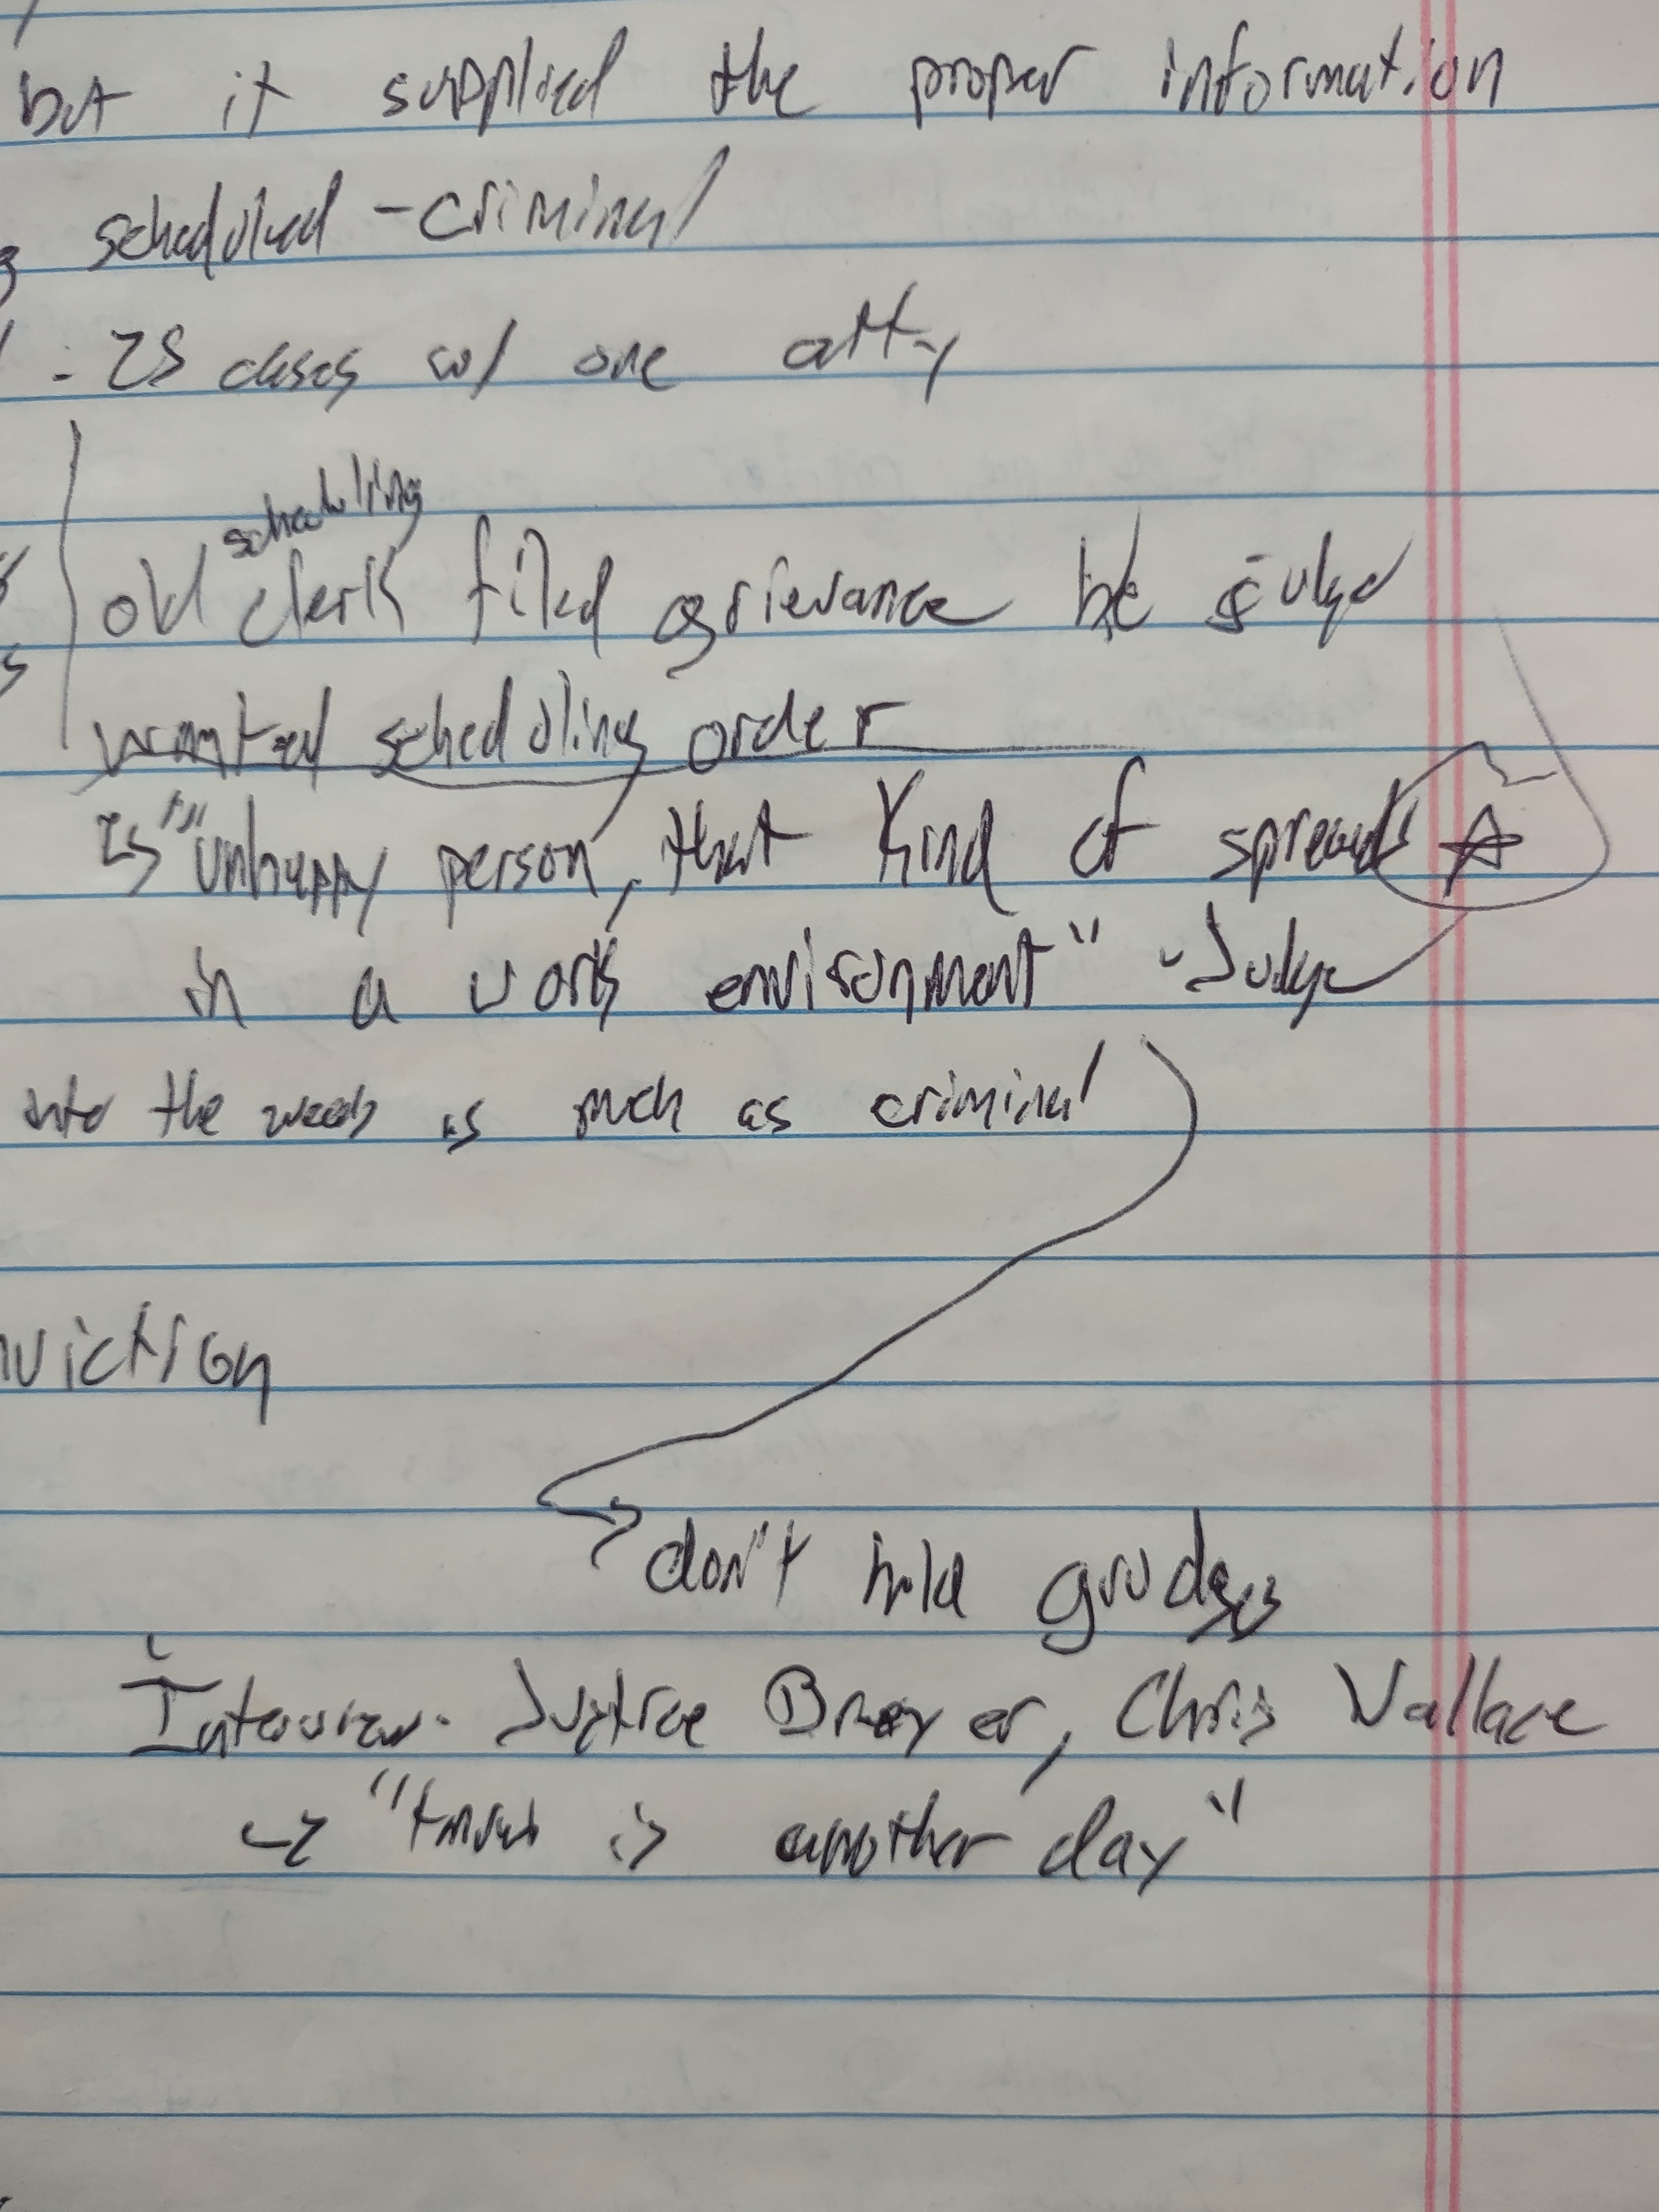 but it supplied the proper information
scheduled - criminal
- 25 cases w/ one atty
scheduling
old clerk filed grievance b/c judge
wanted scheduling order
Is "unhappy person, that kind of spreads ☆
in a work environment" - Judge
into the weeds as much as criminal
nviction
→ don't hold grudges
Interview - Justice Breyer, Chris Wallace
→ "tmrw is another day"